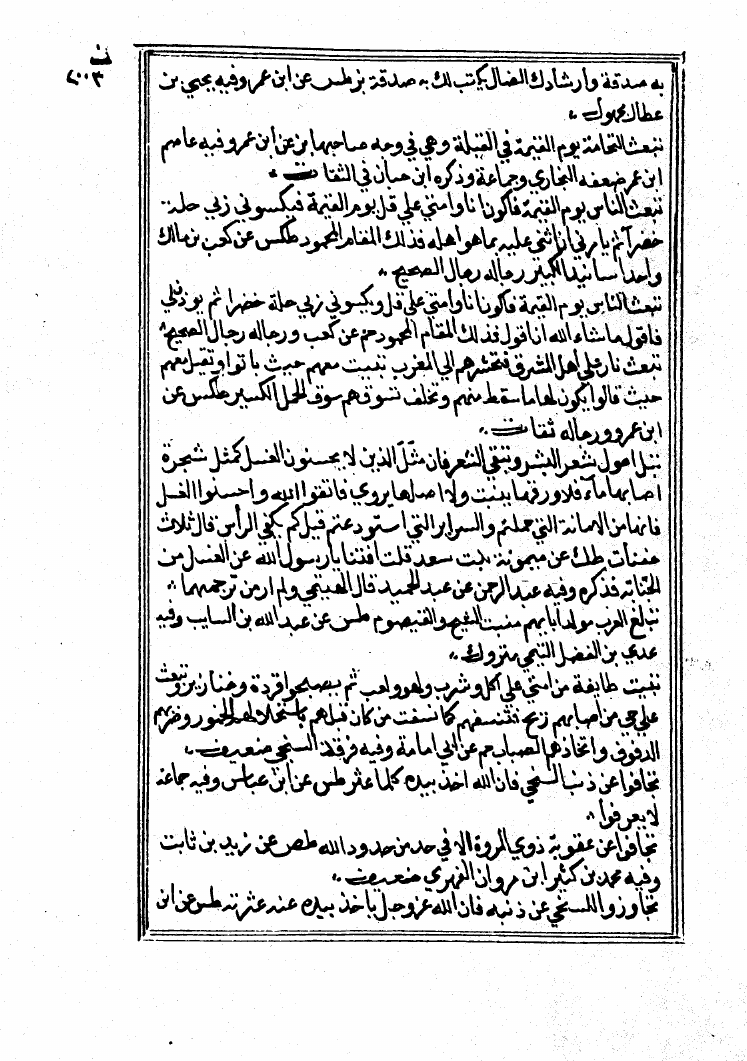 ن
٢٠٠٣
به صدقة وارشادك الضال يكتب لك به صدقة بز طس عن ابن عمر وفيه يحيي بن
عطا مجهول
تبعث النخامة يوم القيمة في القبلة وهي في وجه صاحبها بز عن ابن عمر وفيه عاصم
ابن عمر ضعفه البخاري وجماعة وذكره ابن حبان في الثقات
تبعث الناس يوم القيمة فاكون انا وامتي علي تل يوم القيمة فيكسوني ربي حلة
خضرا ثم ياربي ان اثني عليه بما هو اهله فذلك المقام المحمود طكس عن كعب بن مالك
واحد اسانيد الكبير رجاله رجال الصحيح
تبعث الناس يوم القيمة فاكون انا وامتي علي تل ويكسوني ربي حلة خضرا ثم يوذن لي
فاقول ما شاء الله ان اقول فذلك المقام المحمود حم عن كعب ورجاله رجال الصحيح
تبعث نار علي اهل المشرق فتحشرهم الي المغرب تبيت معهم حيث باتوا وتقيل معهم
حيث قالوا يكون لها ما سقط منهم وتخلف تسوقهم سوق الجمل الكسير طكس عن
ابن عمرو ورجاله ثقات
تبل اصول شعر البشر وتنقي الشعر فان مثل الذين لا يحسنون الغسل كمثل شجرة
اصابها ماء فلا ورقها ينبت ولا اصلها يروي فاتقوا الله واحسنوا الغسل
فانها من الامانة التي حملتم والسراير التي استودعتم قيل كم يكفي الراس قال ثلاث
حفنات طك عن ميمونة بنت سعد قلت افتنا يا رسول الله عن الغسل من
الجنابة فذكره وفيه عبد الرحمن عن عبد الحميد قال الهيثمي ولم ار من ترجمهما
تبلغ العرب مولد ابايهم منبت الشيح والقيصوم طس عن عبد الله بن السايب وفيه
عدي بن الفضل التيمي متروك
تبيت طايفة من امتي علي اكل وشرب ولهو ولعب ثم يصبحوا قردة وخنازير وتبعث
علي حي من احيايهم ريح تنسفهم كما نسفت من كان قبلهم باستحلالهم الخمور وضربهم
الدفوف واتخاذهم القينات حم عن ابي امامة وفيه فرقد السبخي ضعيف
تجافوا عن ذنب السخي فان الله اخذ بيده كلما عثر طس عن ابن عباس وفيه جماعة
لا يعرفوا
تجافوا عن عقوبة ذوي المروة الا في حد من حدود الله طص عن زيد بن ثابت
وفيه محمد بن كثير ابن مروان الفهري ضعيف
تجاوزوا للسخي عن ذنبه فان الله عز وجل ياخذ بيده عند عثرته طس عن ابن